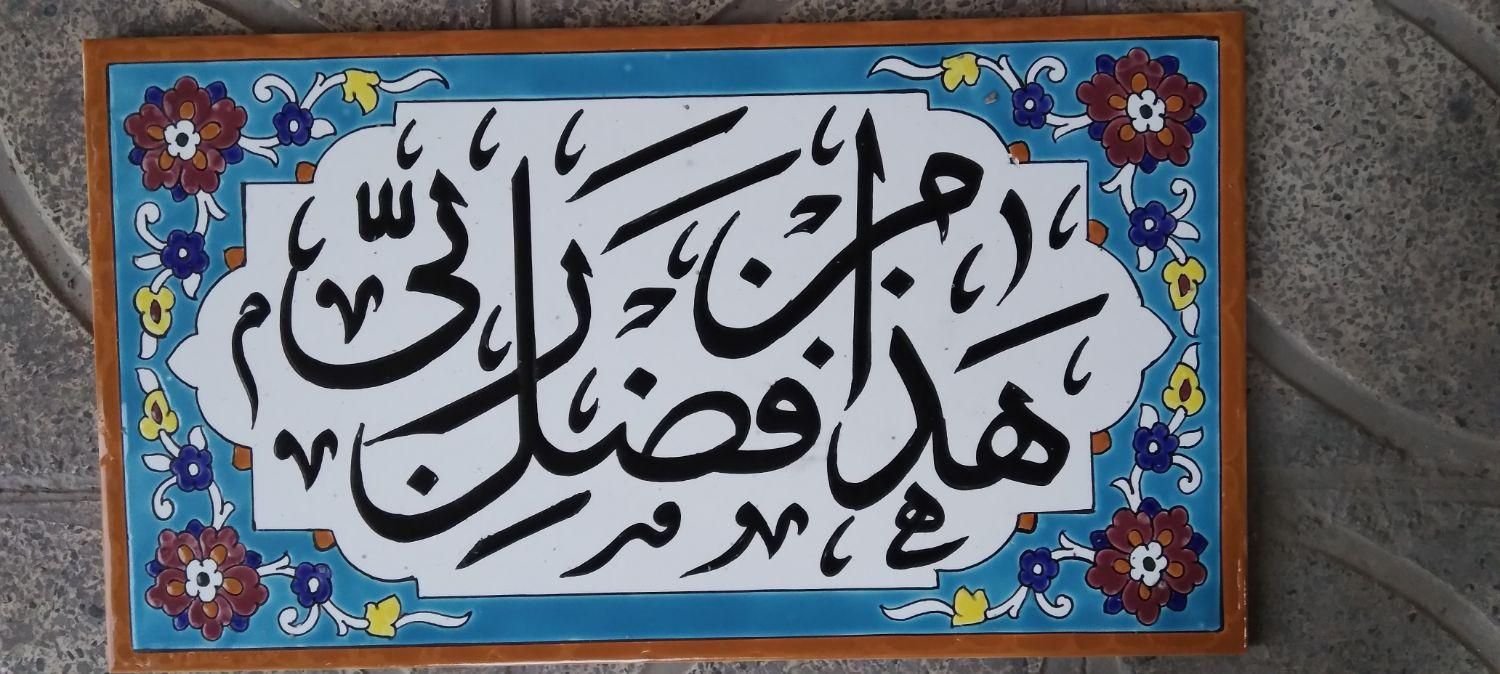 هَذَا مِن فَضْلِ رَبِّي